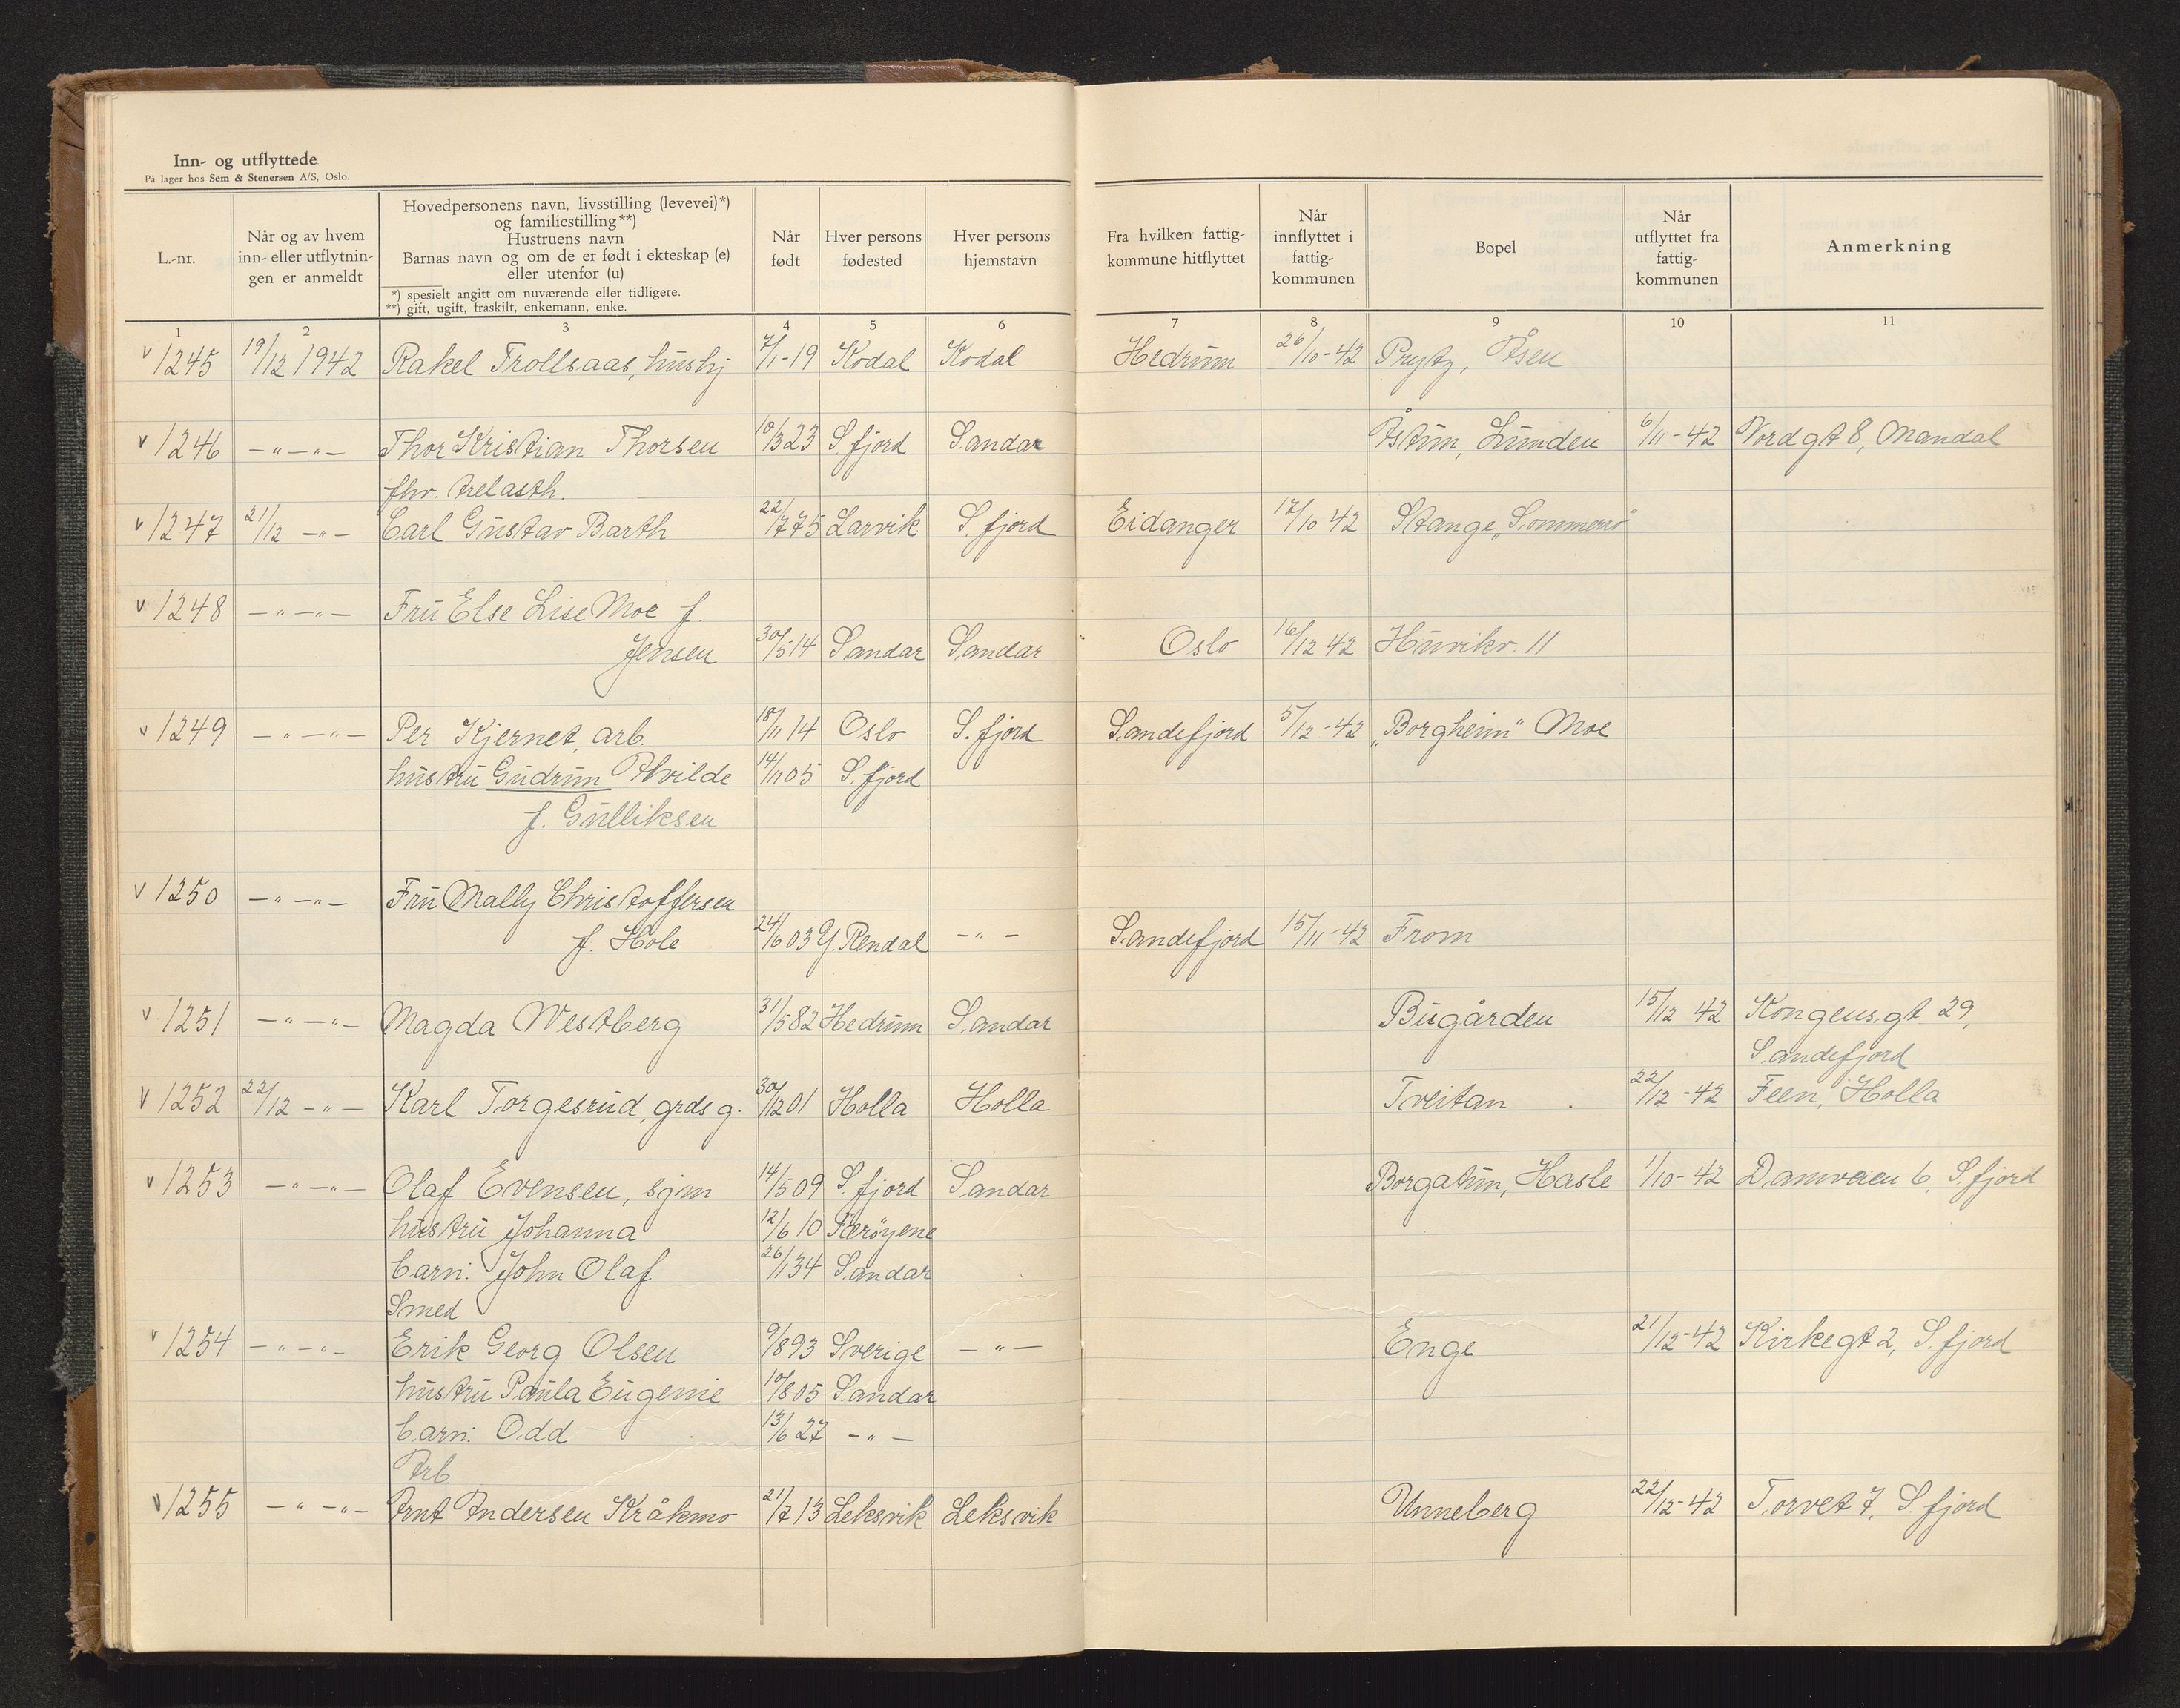 Inn- og utflyttede
På lager hos Sem & Stenersen A/S, Oslo.
L.-nr.
Når og av hvem
inn- eller utflytnin-
gen er anmeldt
Hovedpersonens navn, livsstilling (levevei)*)
og familiestilling**)
Hustruens navn
Barnas navn og om de er født i ekteskap (e)
eller utenfor (u)
*) spesielt angitt om nuværende eller tidligere.
**) gift, ugift, fraskilt, enkemann, enke.
Når
født
Hver persons
fødested
Hver persons
hjemstavn
Fra hvilken fattig-
kommune hitflyttet
Når
innflyttet i
fattig-
kommunen
Bopel
Når
utflyttet fra
fattig-
kommunen
Anmerkning
1 2 3 4 5 6 7 8 9 10 11
v 1245 19/12 1942 Rakel Trollsaas, hushj 7/1-19 Kodal Kodal Hedrum 26/10-42 Prytz, Åsen
v 1246 -"-"- Thor Kristian Thorsen 10/3 23 S.fjord Sandar Åstun, Lunden 6/11-42 Nordgt 8, Mandal
fhv. trelasth.
v 1247 21/12 -"- Carl Gustav Barth 22/7 75 Larvik S.fjord Eidanger 17/10 42 Stange „Sommerro"
v 1248 -"-"- Fru Else Lise Moe f.
Jensen 30/5-14 Sandar Sandar Oslo 16/12 42 Huvikv. 11
v 1249 -"-"- Per Kjernet, arb. 18/11 14 Oslo S.fjord Sandefjord 5/12-42 „Borgheim" Moe
hustru Gudrun Alvilde 14/11 05 S.fjord
f. Gulliksen
v 1250 -"-"- Fru Mally Christoffersen
f. Hole 24/6 03 Y. Rendal -"- Sandefjord 15/11-42 From
v 1251 -"-"- Magda Westberg 31/5 82 Hedrum Sandar Bugården 15/12 42 Kongensgt 29,
Sandefjord
v 1252 22/12 -"- Karl Torgesrud, grdsg. 30/12 01 Holla Holla Tveitan 22/12-42 Feen, Holla
v 1253 -"-"- Olaf Evensen, sjm 14/5 09 S.fjord Sandar Borgatun, Hasle 1/10-42 Damveien 6, S.fjord
hustru Johanna 12/6 10 Færøyene
barn: John Olaf 26/1 34 Sandar
Smed
v 1254 -"-"- Erik Georg Olsen 9/8 93 Sverige -"- Enge 21/12-42 Kirkegt 2, S.fjord
hustru Paula Eugenie 10/8 05 Sandar
barn: Odd 13/6 27 -"-
Arb.
v 1255 -"-"- Arnt Andersen Kråkmo 21/7 13 Leksvik Leksvik Unneberg 22/12-42 Torvet 7, S.fjord